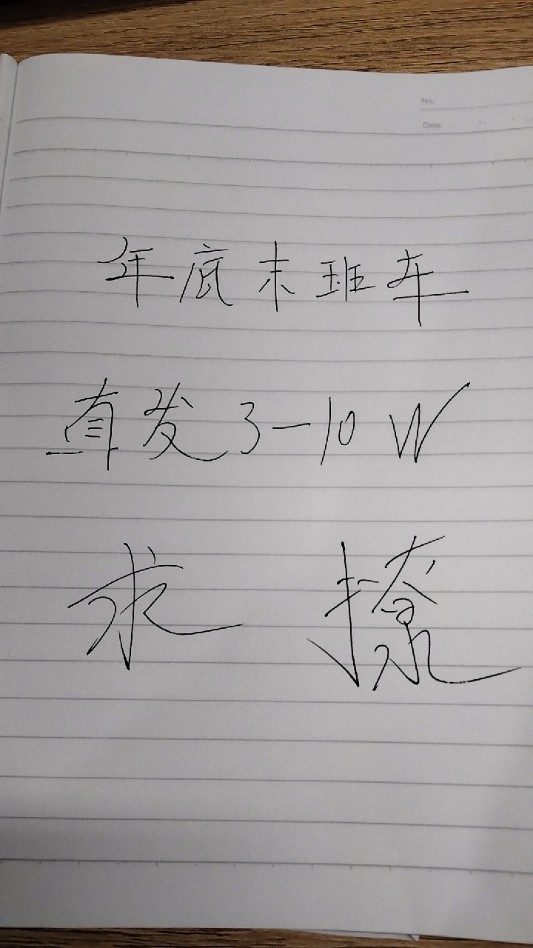 No.
Date
年底末班车
直发3-10W
求 撩